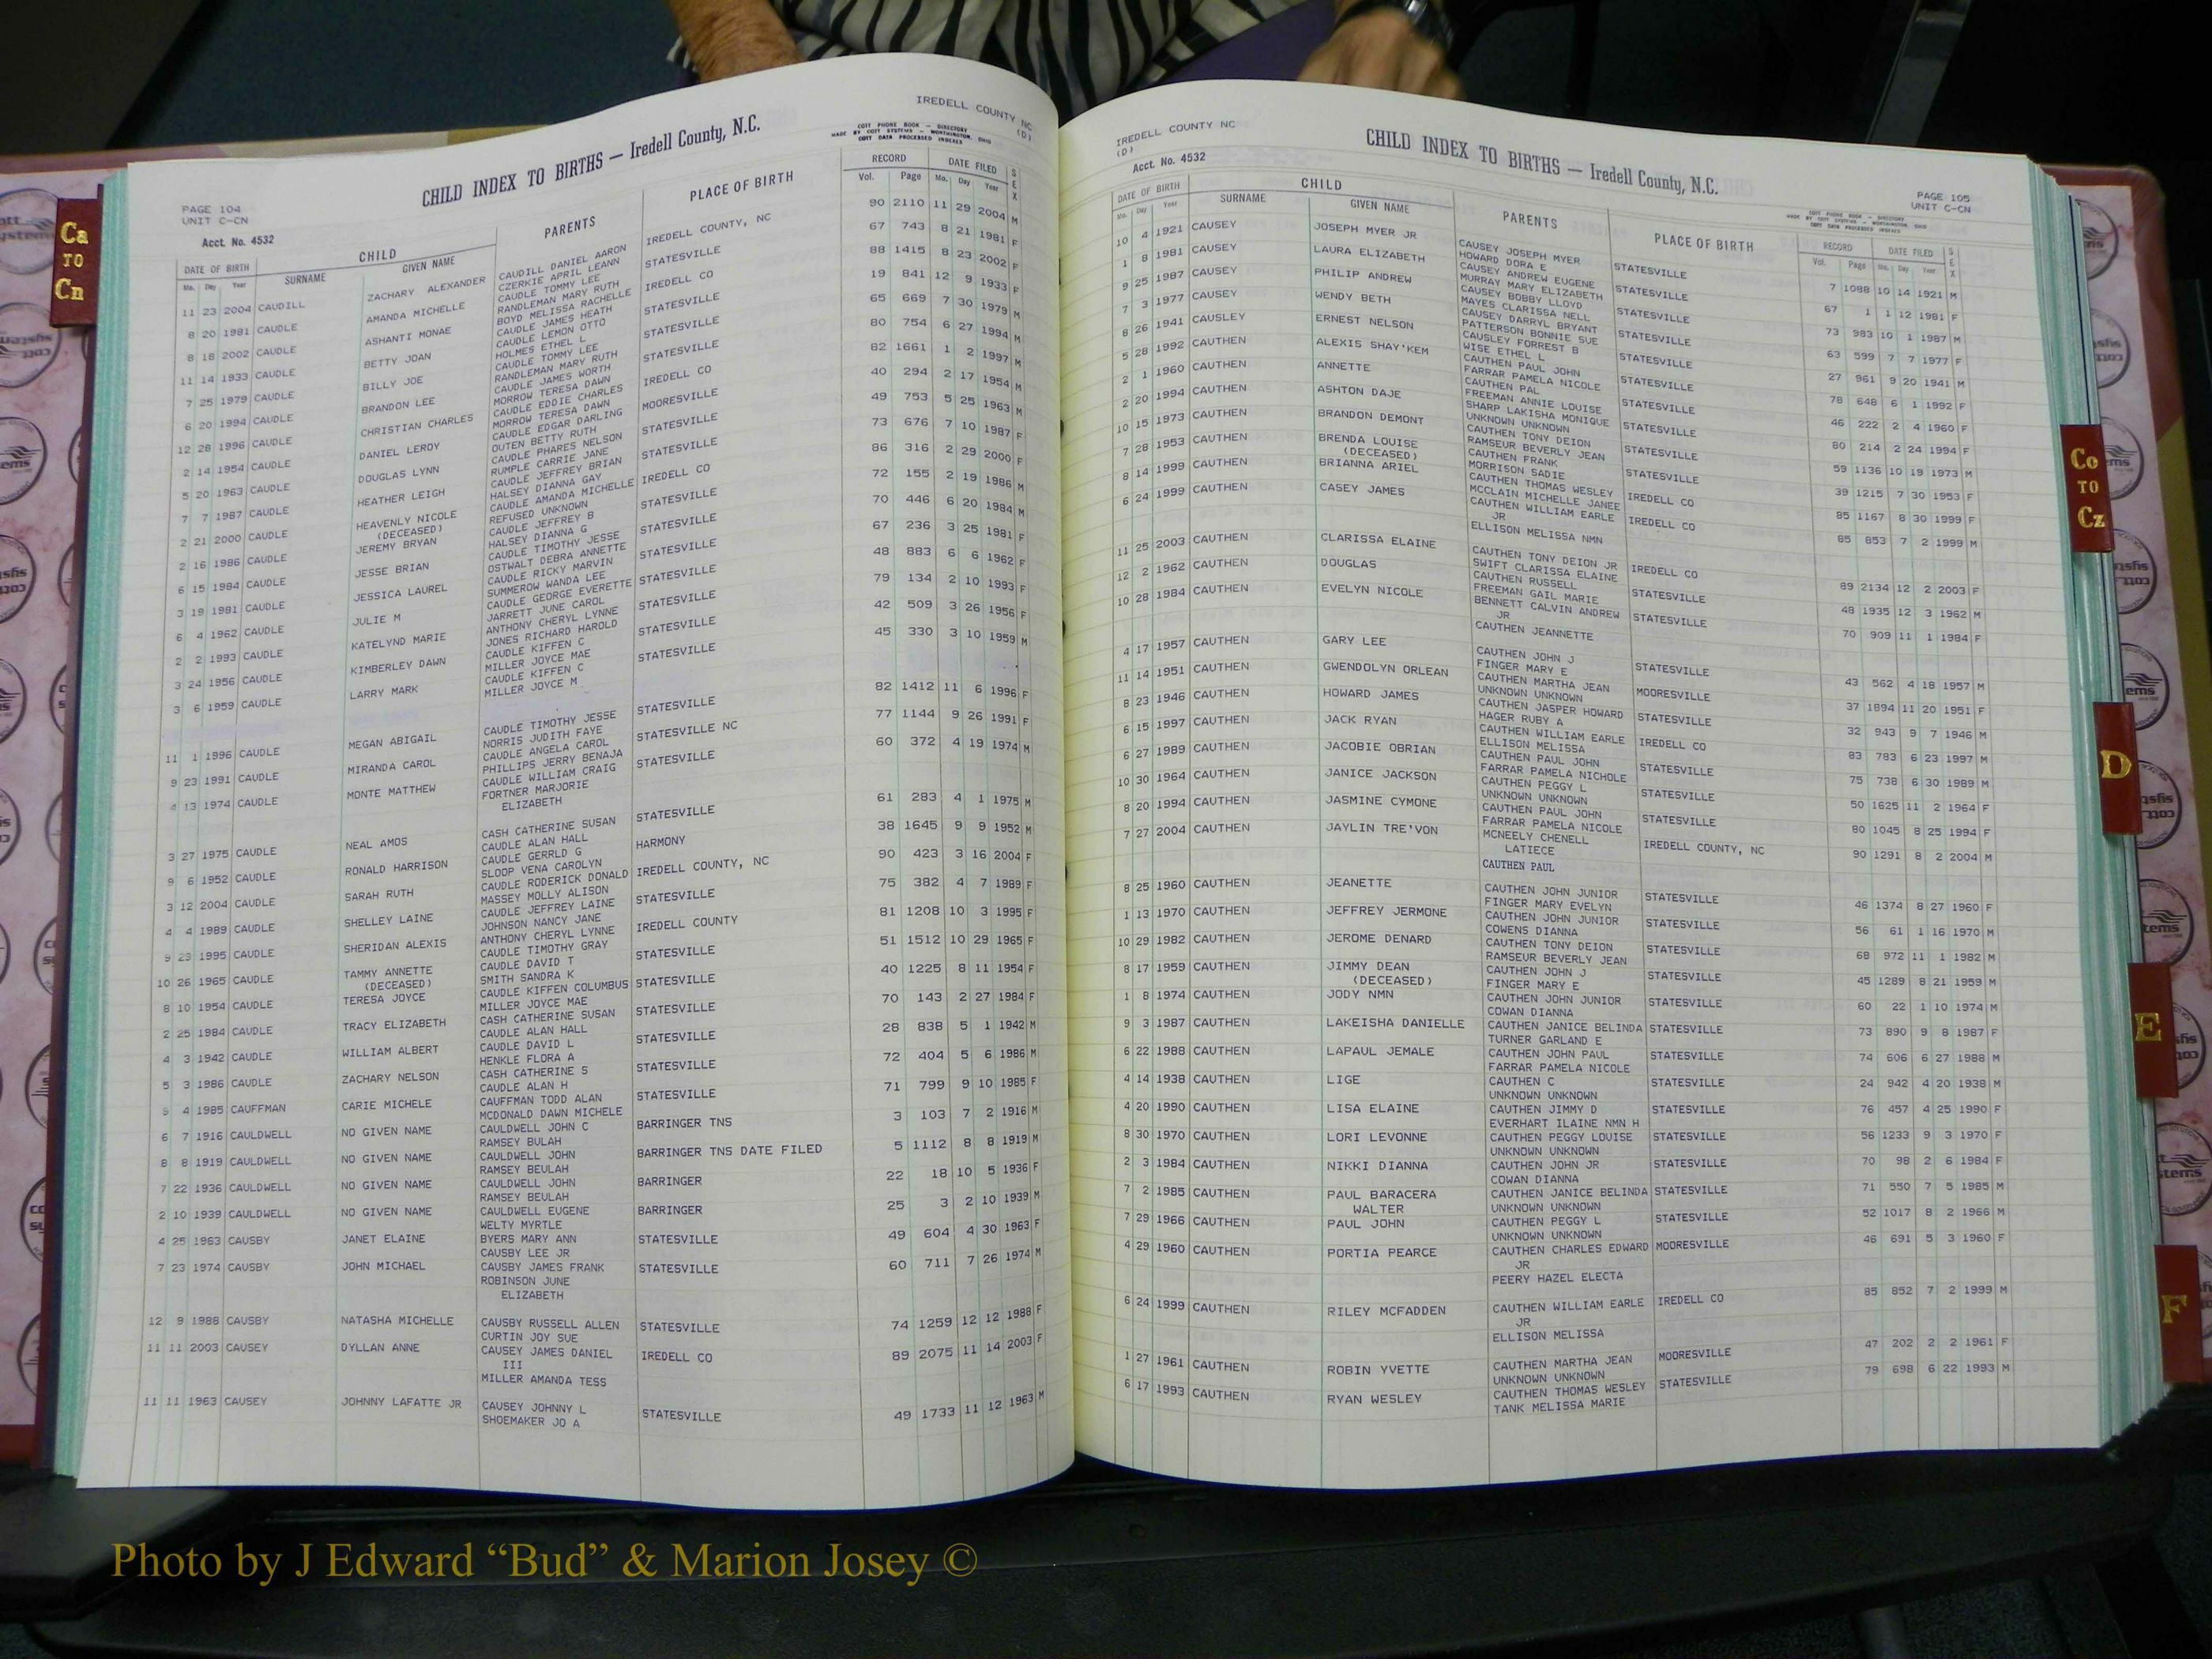 IREDELL COUNTY NC
(D)
CHILD INDEX TO BIRTHS — Iredell County, N.C.
COTT PHONE BOOK — DIRECTORY
MADE BY COTT SYSTEMS — WORTHINGTON, OHIO
COTT DATA PROCESSED INDEXES
PAGE 104
UNIT C-CN
Acct. No. 4532
DATE OF BIRTH CHILD PARENTS PLACE OF BIRTH RECORD DATE FILED SEX
Mo. Day Year SURNAME GIVEN NAME Vol. Page Mo. Day Year
11 23 2004 CAUDILL ZACHARY ALEXANDER CAUDILL DANIEL AARON IREDELL COUNTY, NC 90 2110 11 29 2004 M
CZERKIE APRIL LEANN
8 20 1981 CAUDLE AMANDA MICHELLE CAUDLE TOMMY LEE STATESVILLE 67 743 8 21 1981 F
RANDLEMAN MARY RUTH
8 18 2002 CAUDLE ASHANTI MONAE BOYD MELISSA RACHELLE IREDELL CO 88 1415 8 23 2002 F
CAUDLE JAMES HEATH
11 14 1933 CAUDLE BETTY JOAN CAUDLE LEMON OTTO STATESVILLE 19 841 12 9 1933 F
HOLMES ETHEL L
7 25 1979 CAUDLE BILLY JOE CAUDLE TOMMY LEE STATESVILLE 65 669 7 30 1979 M
RANDLEMAN MARY RUTH
6 20 1994 CAUDLE BRANDON LEE CAUDLE JAMES WORTH STATESVILLE 80 754 6 27 1994 M
MORROW TERESA DAWN
12 28 1996 CAUDLE CHRISTIAN CHARLES CAUDLE EDDIE CHARLES IREDELL CO 82 1661 1 2 1997 M
MORROW TERESA DAWN
2 14 1954 CAUDLE DANIEL LEROY CAUDLE EDGAR DARLING MOORESVILLE 40 294 2 17 1954 M
OUTEN BETTY RUTH
5 20 1963 CAUDLE DOUGLAS LYNN CAUDLE PHARES NELSON STATESVILLE 49 753 5 25 1963 M
RUMPLE CARRIE JANE
7 7 1987 CAUDLE HEATHER LEIGH CAUDLE JEFFREY BRIAN STATESVILLE 73 676 7 10 1987 F
HALSEY DIANNA GAY
2 21 2000 CAUDLE HEAVENLY NICOLE CAUDLE AMANDA MICHELLE IREDELL CO 86 316 2 29 2000 F
(DECEASED) REFUSED UNKNOWN
2 16 1986 CAUDLE JEREMY BRYAN CAUDLE JEFFREY B STATESVILLE 72 155 2 19 1986 M
HALSEY DIANNA G
6 15 1984 CAUDLE JESSE BRIAN CAUDLE TIMOTHY JESSE STATESVILLE 70 446 6 20 1984 M
OSTWALT DEBRA ANNETTE
3 19 1981 CAUDLE JESSICA LAUREL CAUDLE RICKY MARVIN STATESVILLE 67 236 3 25 1981 F
SUMMEROW WANDA LEE
6 4 1962 CAUDLE JULIE M CAUDLE GEORGE EVERETTE STATESVILLE 48 883 6 6 1962 F
JARRETT JUNE CAROL
2 2 1993 CAUDLE KATELYND MARIE ANTHONY CHERYL LYNNE STATESVILLE 79 134 2 10 1993 F
JONES RICHARD HAROLD
3 24 1956 CAUDLE KIMBERLEY DAWN CAUDLE KIFFEN C STATESVILLE 42 509 3 26 1956 F
MILLER JOYCE MAE
3 6 1959 CAUDLE LARRY MARK CAUDLE KIFFEN C STATESVILLE 45 330 3 10 1959 M
MILLER JOYCE M
11 1 1996 CAUDLE MEGAN ABIGAIL CAUDLE TIMOTHY JESSE STATESVILLE 82 1412 11 6 1996 F
NORRIS JUDITH FAYE
9 23 1991 CAUDLE MIRANDA CAROL CAUDLE ANGELA CAROL STATESVILLE NC 77 1144 9 26 1991 F
PHILLIPS JERRY BENAJA
4 13 1974 CAUDLE MONTE MATTHEW CAUDLE WILLIAM CRAIG STATESVILLE 60 372 4 19 1974 M
FORTNER MARJORIE
ELIZABETH
3 27 1975 CAUDLE NEAL AMOS CASH CATHERINE SUSAN STATESVILLE 61 283 4 1 1975 M
CAUDLE ALAN HALL
9 6 1952 CAUDLE RONALD HARRISON CAUDLE GERRLD G HARMONY 38 1645 9 9 1952 M
SLOOP VENA CAROLYN
3 12 2004 CAUDLE SARAH RUTH CAUDLE RODERICK DONALD IREDELL COUNTY, NC 90 423 3 16 2004 F
MASSEY MOLLY ALISON
4 4 1989 CAUDLE SHELLEY LAINE CAUDLE JEFFREY LAINE STATESVILLE 75 382 4 7 1989 F
JOHNSON NANCY JANE
9 23 1995 CAUDLE SHERIDAN ALEXIS ANTHONY CHERYL LYNNE IREDELL COUNTY 81 1208 10 3 1995 F
CAUDLE TIMOTHY GRAY
10 26 1965 CAUDLE TAMMY ANNETTE CAUDLE DAVID T STATESVILLE 51 1512 10 29 1965 F
(DECEASED) SMITH SANDRA K
8 10 1954 CAUDLE TERESA JOYCE CAUDLE KIFFEN COLUMBUS STATESVILLE 40 1225 8 11 1954 F
MILLER JOYCE MAE
2 25 1984 CAUDLE TRACY ELIZABETH CASH CATHERINE SUSAN STATESVILLE 70 143 2 27 1984 F
CAUDLE ALAN HALL
4 3 1942 CAUDLE WILLIAM ALBERT CAUDLE DAVID L STATESVILLE 28 838 5 1 1942 M
HENKLE FLORA A
5 3 1986 CAUDLE ZACHARY NELSON CASH CATHERINE S STATESVILLE 72 404 5 6 1986 M
CAUDLE ALAN H
9 4 1985 CAUFFMAN CARIE MICHELE CAUFFMAN TODD ALAN STATESVILLE 71 799 9 10 1985 F
MCDONALD DAWN MICHELE
6 7 1916 CAULDWELL NO GIVEN NAME CAULDWELL JOHN C BARRINGER TNS 3 103 7 2 1916 M
RAMSEY BULAH
8 8 1919 CAULDWELL NO GIVEN NAME CAULDWELL JOHN BARRINGER TNS DATE FILED 5 1112 8 8 1919 M
RAMSEY BEULAH
7 22 1936 CAULDWELL NO GIVEN NAME CAULDWELL JOHN BARRINGER 22 18 10 5 1936 F
RAMSEY BEULAH
2 10 1939 CAULDWELL NO GIVEN NAME CAULDWELL EUGENE BARRINGER 25 3 2 10 1939 M
WELTY MYRTLE
4 25 1963 CAUSBY JANET ELAINE BYERS MARY ANN STATESVILLE 49 604 4 30 1963 F
CAUSBY LEE JR
7 23 1974 CAUSBY JOHN MICHAEL CAUSBY JAMES FRANK STATESVILLE 60 711 7 26 1974 M
ROBINSON JUNE
ELIZABETH
12 9 1988 CAUSBY NATASHA MICHELLE CAUSBY RUSSELL ALLEN STATESVILLE 74 1259 12 12 1988 F
CURTIN JOY SUE
11 11 2003 CAUSEY DYLLAN ANNE CAUSEY JAMES DANIEL IREDELL CO 89 2075 11 14 2003 F
III
MILLER AMANDA TESS
11 11 1963 CAUSEY JOHNNY LAFATTE JR CAUSEY JOHNNY L STATESVILLE 49 1733 11 12 1963 M
SHOEMAKER JO A
IREDELL COUNTY NC
(D)
CHILD INDEX TO BIRTHS — Iredell County, N.C.
Acct. No. 4532
PAGE 105
UNIT C-CN
COTT PHONE BOOK — DIRECTORY
MADE BY COTT SYSTEMS — WORTHINGTON, OHIO
COTT DATA PROCESSED INDEXES
DATE OF BIRTH CHILD PARENTS PLACE OF BIRTH RECORD DATE FILED SEX
Mo. Day Year SURNAME GIVEN NAME Vol. Page Mo. Day Year
10 4 1921 CAUSEY JOSEPH MYER JR CAUSEY JOSEPH MYER STATESVILLE 7 1088 10 14 1921 M
HOWARD DORA E
1 8 1981 CAUSEY LAURA ELIZABETH CAUSEY ANDREW EUGENE STATESVILLE 67 1 1 12 1981 F
MURRAY MARY ELIZABETH
9 25 1987 CAUSEY PHILIP ANDREW CAUSEY BOBBY LLOYD STATESVILLE 73 983 10 1 1987 M
MAYES CLARISSA NELL
7 3 1977 CAUSEY WENDY BETH CAUSEY DARRYL BRYANT STATESVILLE 63 599 7 7 1977 F
PATTERSON BONNIE SUE
8 26 1941 CAUSLEY ERNEST NELSON CAUSLEY FORREST B STATESVILLE 27 961 9 20 1941 M
WISE ETHEL L
5 28 1992 CAUTHEN ALEXIS SHAY'KEM CAUTHEN PAUL JOHN STATESVILLE 78 648 6 1 1992 F
FARRAR PAMELA NICOLE
2 1 1960 CAUTHEN ANNETTE CAUTHEN PAL STATESVILLE 46 222 2 4 1960 F
FREEMAN ANNIE LOUISE
2 20 1994 CAUTHEN ASHTON DAJE SHARP LAKISHA MONIQUE STATESVILLE 80 214 2 24 1994 F
UNKNOWN UNKNOWN
10 15 1973 CAUTHEN BRANDON DEMONT CAUTHEN TONY DEION STATESVILLE 59 1136 10 19 1973 M
RAMSEUR BEVERLY JEAN
7 28 1953 CAUTHEN BRENDA LOUISE CAUTHEN FRANK IREDELL CO 39 1215 7 30 1953 F
(DECEASED) MORRISON SADIE
8 14 1999 CAUTHEN BRIANNA ARIEL CAUTHEN THOMAS WESLEY IREDELL CO 85 1167 8 30 1999 F
MCCLAIN MICHELLE JANEE
6 24 1999 CAUTHEN CASEY JAMES CAUTHEN WILLIAM EARLE 85 853 7 2 1999 M
JR
ELLISON MELISSA NMN
11 25 2003 CAUTHEN CLARISSA ELAINE CAUTHEN TONY DEION JR IREDELL CO 89 2134 12 2 2003 F
SWIFT CLARISSA ELAINE
12 2 1962 CAUTHEN DOUGLAS CAUTHEN RUSSELL STATESVILLE 48 1935 12 3 1962 M
FREEMAN GAIL MARIE
10 28 1984 CAUTHEN EVELYN NICOLE BENNETT CALVIN ANDREW STATESVILLE 70 909 11 1 1984 F
JR
CAUTHEN JEANNETTE
4 17 1957 CAUTHEN GARY LEE CAUTHEN JOHN J STATESVILLE 43 562 4 18 1957 M
FINGER MARY E
11 14 1951 CAUTHEN GWENDOLYN ORLEAN CAUTHEN MARTHA JEAN MOORESVILLE 37 1894 11 20 1951 F
UNKNOWN UNKNOWN
8 23 1946 CAUTHEN HOWARD JAMES CAUTHEN JASPER HOWARD STATESVILLE 32 943 9 7 1946 M
HAGER RUBY A
6 15 1997 CAUTHEN JACK RYAN CAUTHEN WILLIAM EARLE IREDELL CO 83 783 6 23 1997 M
ELLISON MELISSA
6 27 1989 CAUTHEN JACOBIE OBRIAN CAUTHEN PAUL JOHN STATESVILLE 75 738 6 30 1989 M
FARRAR PAMELA NICHOLE
10 30 1964 CAUTHEN JANICE JACKSON CAUTHEN PEGGY L STATESVILLE 50 1625 11 2 1964 F
UNKNOWN UNKNOWN
8 20 1994 CAUTHEN JASMINE CYMONE CAUTHEN PAUL JOHN STATESVILLE 80 1045 8 25 1994 F
FARRAR PAMELA NICOLE
7 27 2004 CAUTHEN JAYLIN TRE'VON MCNEELY CHENELL IREDELL COUNTY, NC 90 1291 8 2 2004 M
LATIECE
CAUTHEN PAUL
8 25 1960 CAUTHEN JEANETTE CAUTHEN JOHN JUNIOR STATESVILLE 46 1374 8 27 1960 F
FINGER MARY EVELYN
1 13 1970 CAUTHEN JEFFREY JERMONE CAUTHEN JOHN JUNIOR STATESVILLE 56 61 1 16 1970 M
COWENS DIANNA
10 29 1982 CAUTHEN JEROME DENARD CAUTHEN TONY DEION STATESVILLE 68 972 11 1 1982 M
RAMSEUR BEVERLY JEAN
8 17 1959 CAUTHEN JIMMY DEAN CAUTHEN JOHN J STATESVILLE 45 1289 8 21 1959 M
(DECEASED) FINGER MARY E
1 8 1974 CAUTHEN JODY NMN CAUTHEN JOHN JUNIOR STATESVILLE 60 22 1 10 1974 M
COWAN DIANNA
9 3 1987 CAUTHEN LAKEISHA DANIELLE CAUTHEN JANICE BELINDA STATESVILLE 73 890 9 8 1987 F
TURNER GARLAND E
6 22 1988 CAUTHEN LAPAUL JEMALE CAUTHEN JOHN PAUL STATESVILLE 74 606 6 27 1988 M
FARRAR PAMELA NICOLE
4 14 1938 CAUTHEN LIGE CAUTHEN C STATESVILLE 24 942 4 20 1938 M
UNKNOWN UNKNOWN
4 20 1990 CAUTHEN LISA ELAINE CAUTHEN JIMMY D STATESVILLE 76 457 4 25 1990 F
EVERHART ILAINE NMN H
8 30 1970 CAUTHEN LORI LEVONNE CAUTHEN PEGGY LOUISE STATESVILLE 56 1233 9 3 1970 F
UNKNOWN UNKNOWN
2 3 1984 CAUTHEN NIKKI DIANNA CAUTHEN JOHN JR STATESVILLE 70 98 2 6 1984 F
COWAN DIANNA
7 2 1985 CAUTHEN PAUL BARACERA CAUTHEN JANICE BELINDA STATESVILLE 71 550 7 5 1985 M
WALTER UNKNOWN UNKNOWN
7 29 1966 CAUTHEN PAUL JOHN CAUTHEN PEGGY L STATESVILLE 52 1017 8 2 1966 M
UNKNOWN UNKNOWN
4 29 1960 CAUTHEN PORTIA PEARCE CAUTHEN CHARLES EDWARD MOORESVILLE 46 691 5 3 1960 F
JR
PEERY HAZEL ELECTA
6 24 1999 CAUTHEN RILEY MCFADDEN CAUTHEN WILLIAM EARLE IREDELL CO 85 852 7 2 1999 M
JR
ELLISON MELISSA
1 27 1961 CAUTHEN ROBIN YVETTE CAUTHEN MARTHA JEAN MOORESVILLE 47 202 2 2 1961 F
UNKNOWN UNKNOWN
6 17 1993 CAUTHEN RYAN WESLEY CAUTHEN THOMAS WESLEY STATESVILLE 79 698 6 22 1993 M
TANK MELISSA MARIE
Ca
TO
Cn
Co
TO
Cz
D
E
F
Photo by J Edward “Bud” & Marion Josey ©